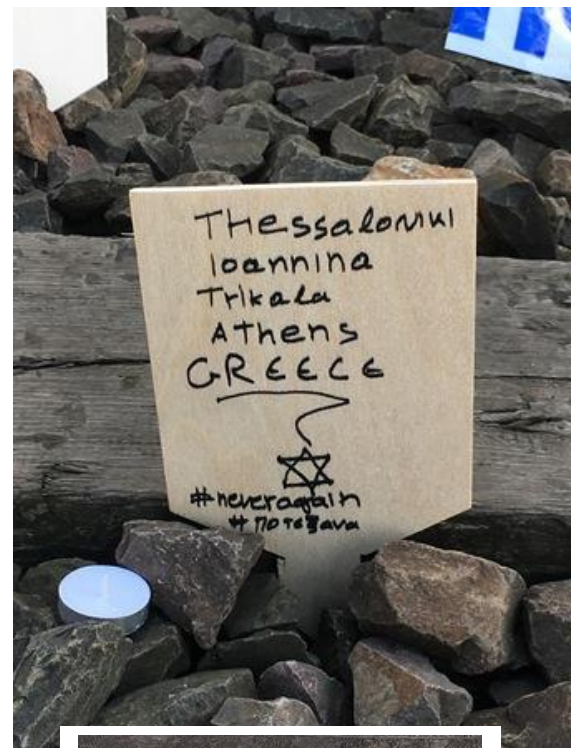 Thessaloniki
Ioannina
Trikala
Athens
GREECE
#neveragain
#ποτεξανα